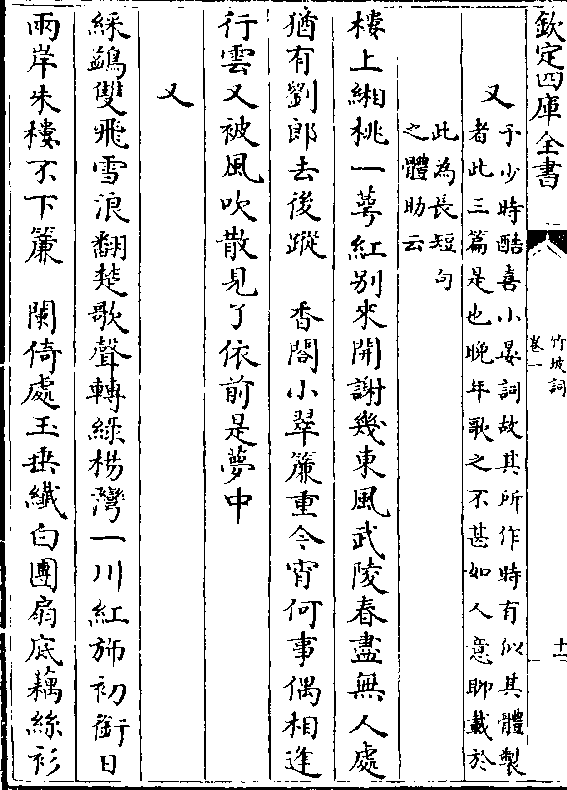 欽定四庫全書
竹坡詞
卷一
十一
又
予少時酷喜小晏詞故其所作時有似其體製
者此三篇是也晚年歌之不甚如人意聊載於
此為長短句
之體助云
樓上緗桃一萼紅别來開謝幾東風武陵春盡無人處
猶有劉郎去後蹤　香閣小翠簾重今宵何事偶相逢
行雲又被風吹散見了依前是夢中
又
綵鷁雙飛雪浪翻楚歌聲轉綠楊灣一川紅斾初銜日
兩岸朱樓不下簾　闌倚處玉垂纖白團扇底藕絲衫